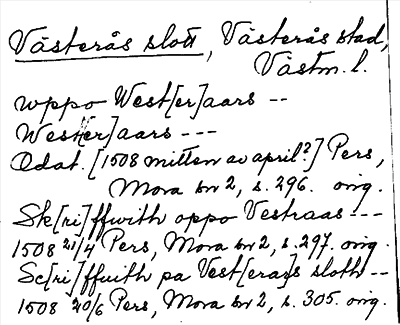 Västerås slott, Västerås stad,
Västm. l.
wppo West[er]aars --
West[er]aars ---
Odat. [1508 mitten av april?] Pers,
Mora br 2, s. 296. orig.
Sk[ri]ffwith oppo Vestraas ---
1508 21/4 Pers, Mora br 2, s. 297. orig.
Sc[ri]ffuith pa Vest[era]s sloth --
1508 20/6 Pers, Mora br 2, s. 305. orig.